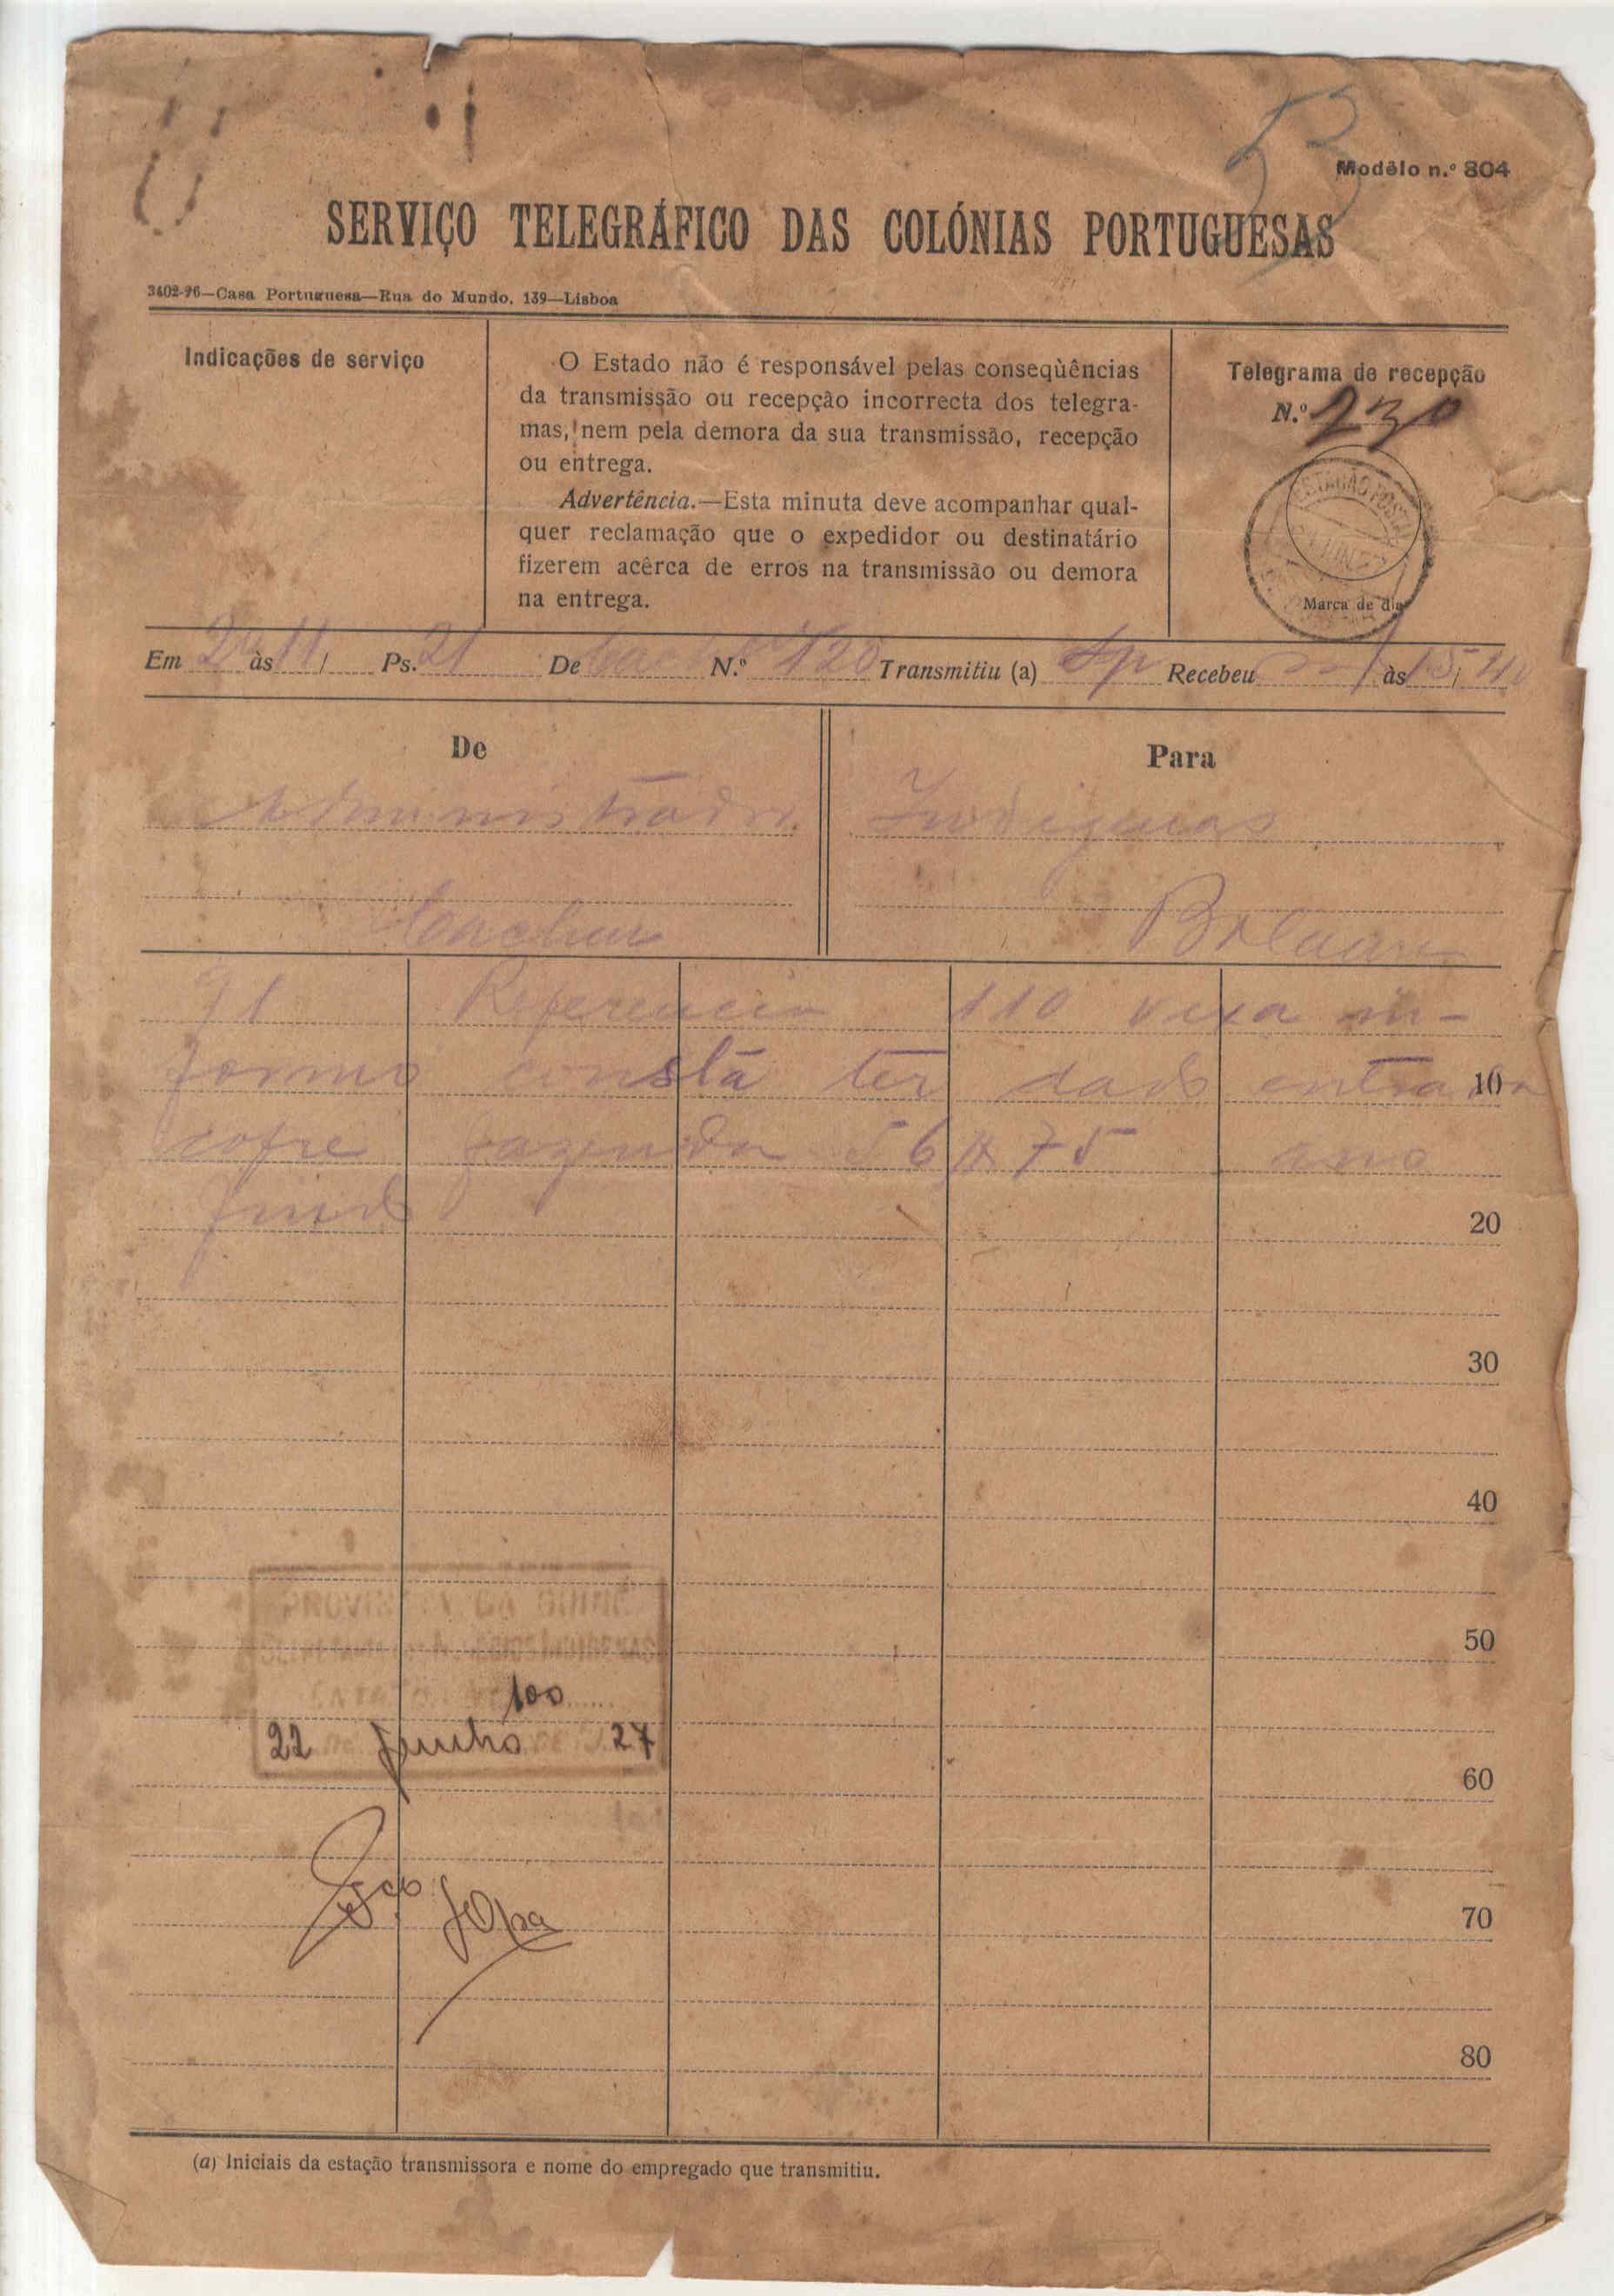 53
Modêlo n.º 804
SERVIÇO TELEGRÁFICO DAS COLÓNIAS PORTUGUESAS
3402-96—Casa Portuguesa—Rua do Mundo, 139—Lisboa
Indicações de serviço
O Estado não é responsável pelas conseqùências
da transmissão ou recepção incorrecta dos telegra-
mas, nem pela demora da sua transmissão, recepção
ou entrega.
Advertência.—Esta minuta deve acompanhar qual-
quer reclamação que o expedidor ou destinatário
fizerem acêrca de erros na transmissão ou demora
na entrega.
Telegrama de recepção
N.º 230
ESTAÇÃO POSTAL
Marca de dia
Em às 11 / Ps. 21 De N.º 120 Transmitiu (a) Recebeu às 15 / 40
De
Administrador
Cacheu
Para
Indigenas
Bolama
91 Referencia 110 vexa in-
formo constá ter dado entrada
cofre fazenda 56$75 ano
findo
10
20
30
40
50
60
70
80
PROVINCIA DA GUINÉ
100
22 Junho DE 27
(a) Iniciais da estação transmissora e nome do empregado que transmitiu.